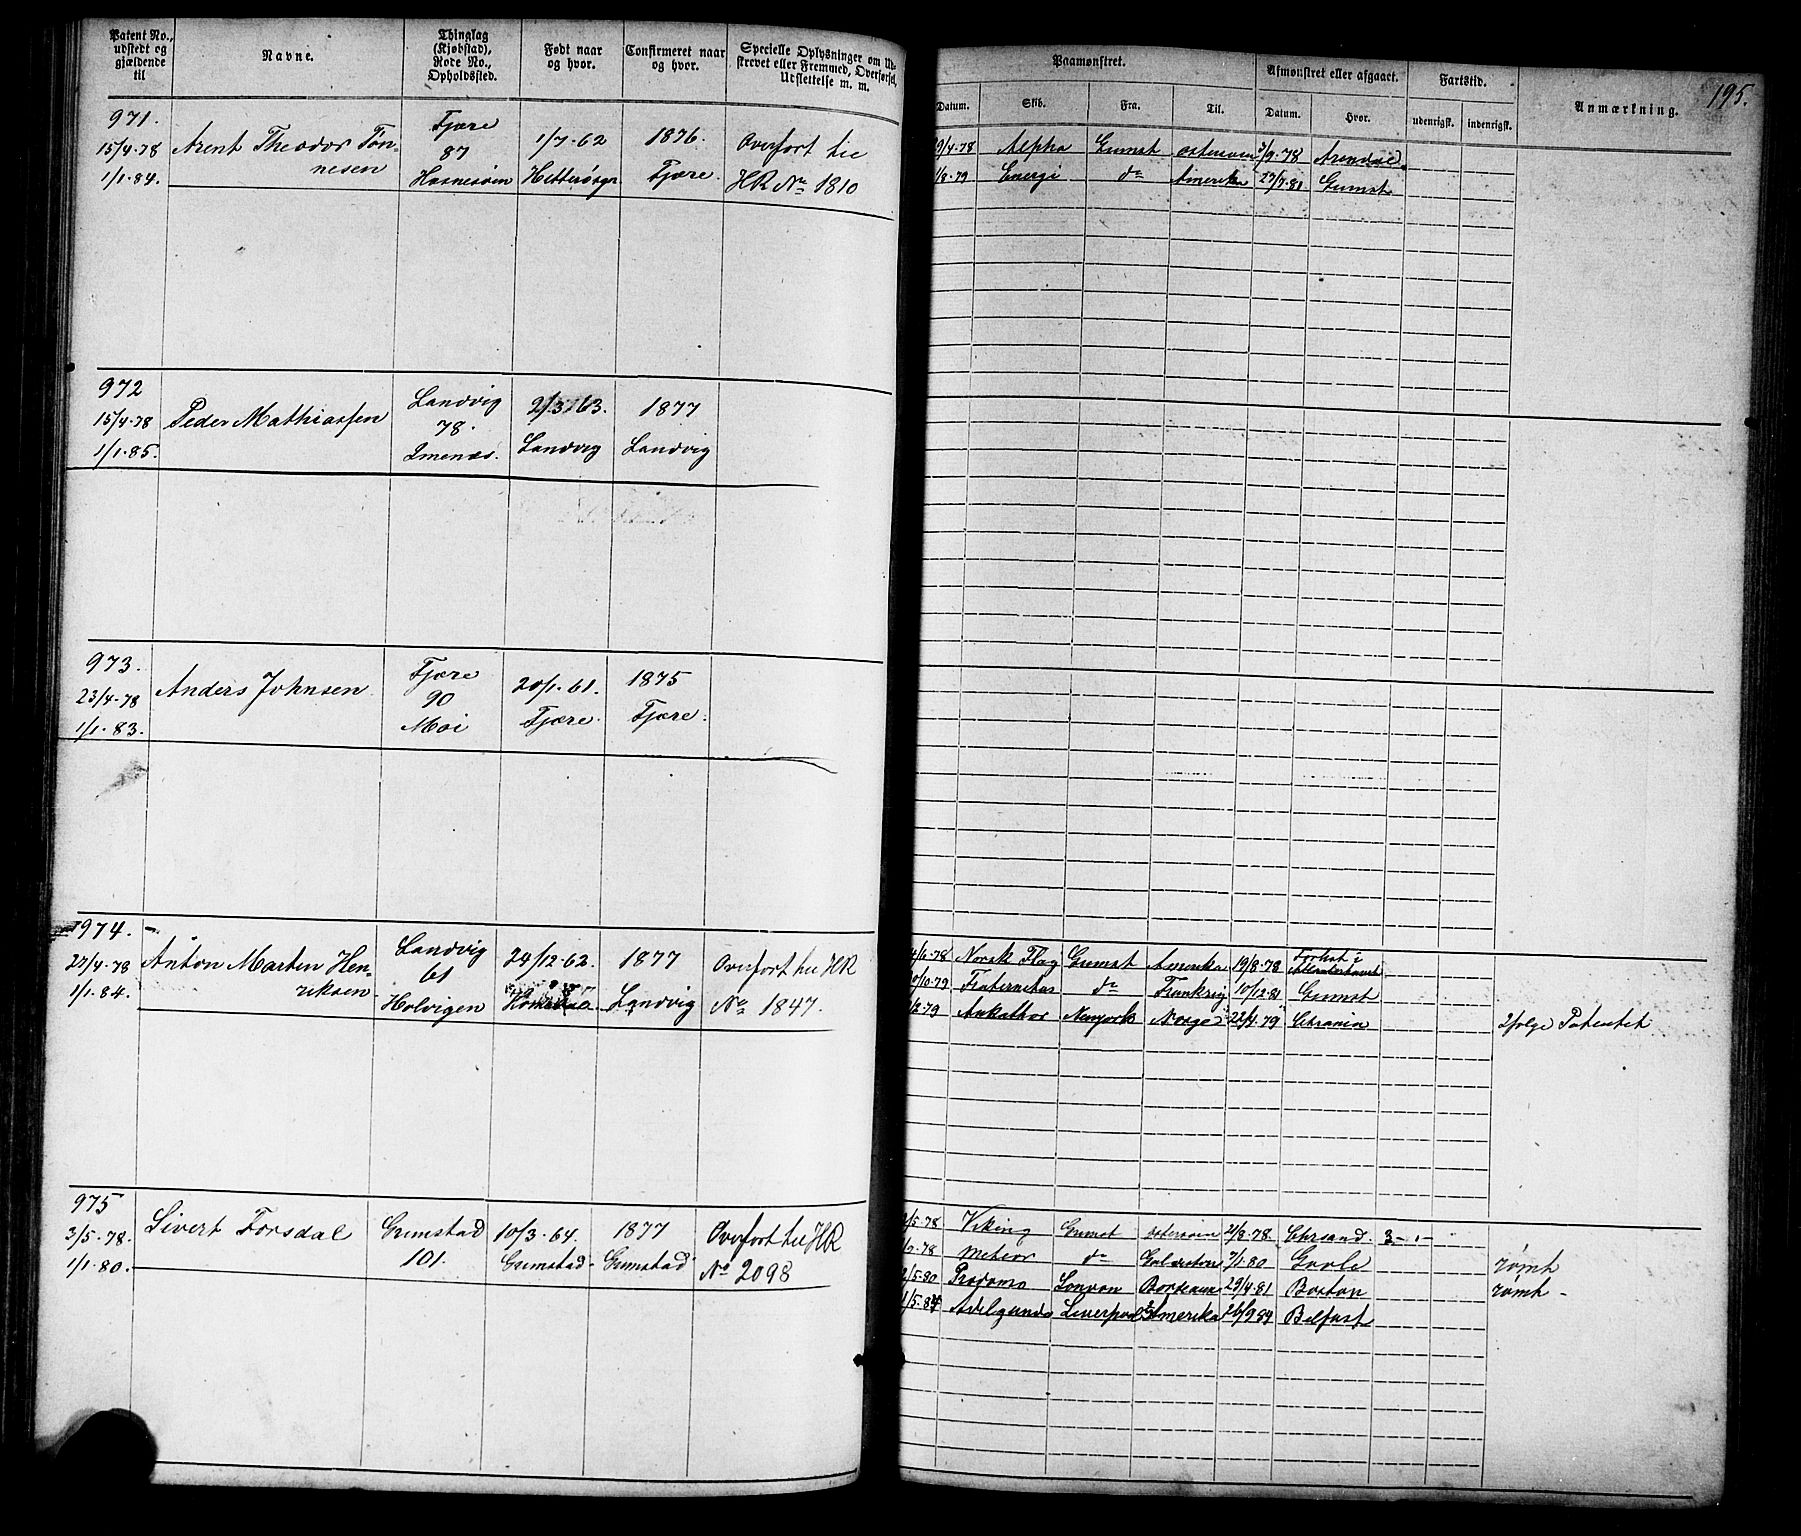 Patent No., udstedt og gjældende til
Navne.
Thinglag (Kjøbstad), Rode No., Opholdssted.
Født naar og hvor.
Confirmeret naar og hvor.
Specielle Oplysninger om Udskrevet eller Fremmed, Overførsel, Udslettelse m. m.
Paamønstret.
Datum.
Skib.
Fra.
Til.
Afmønstret eller afgaaet.
Datum.
Hvor.
Fartstid.
udenrigsk.
indenrigsk.
Anmærkning.
195.
971.
15/4-78
1/1.84.
Arent Theodor Tön-
nesen
Fjære
87
Hasnesöen
1/7.62
1876.
Fjære.
Overfört til
HR No 1810
9/4-78 Alpha Grmst östersöen 3/9.78 Arendal
1/8.79 Energi do Amerika 27/7.81 Grmst
972
15/4-78
1/1.85.
Peder Mathiassen
Landvig
78.
Imenæs.
2/3.63.
Landvig
1877
Landvig
973.
23/4-78
1/1.83.
Anders Johnsen
Fjære
90
Moi
20/1.61.
Fjære.
1875
Fjære.
974.
27/4-78
1/1.84.
Anton Martin Hen-
riksen
Landvig
61
Holvigen
24/12.62.
1877
Landvig
Overfört til HR
No 1847.
4/6-78 Norsk Flag Grmst Amerika 19/8.78 Forlist i
0/10.79 Fraternitas do Frankrig 10/12.81 Grmst
Newyork Norge 22/4.79 Chrania
ifølge Patentet
975
3/5-78.
1/1.80.
Sivert Forsdal
Grimstad
101.
10/3.64.
Grimstad.
1877
Grimstad
Overfört til HR
No 2098
2/5.78 Viking Grmst östersöen 21/8.78 Chrsand 3-
Meteor do Galveston 7/1.80 Gavle
rømt
2/5.80 Prodromo London Bordeaux 29/4.81 Boston
rømt-
1/5.84 Adelgunda Liverpool Amerika 26/9.84 Belfast